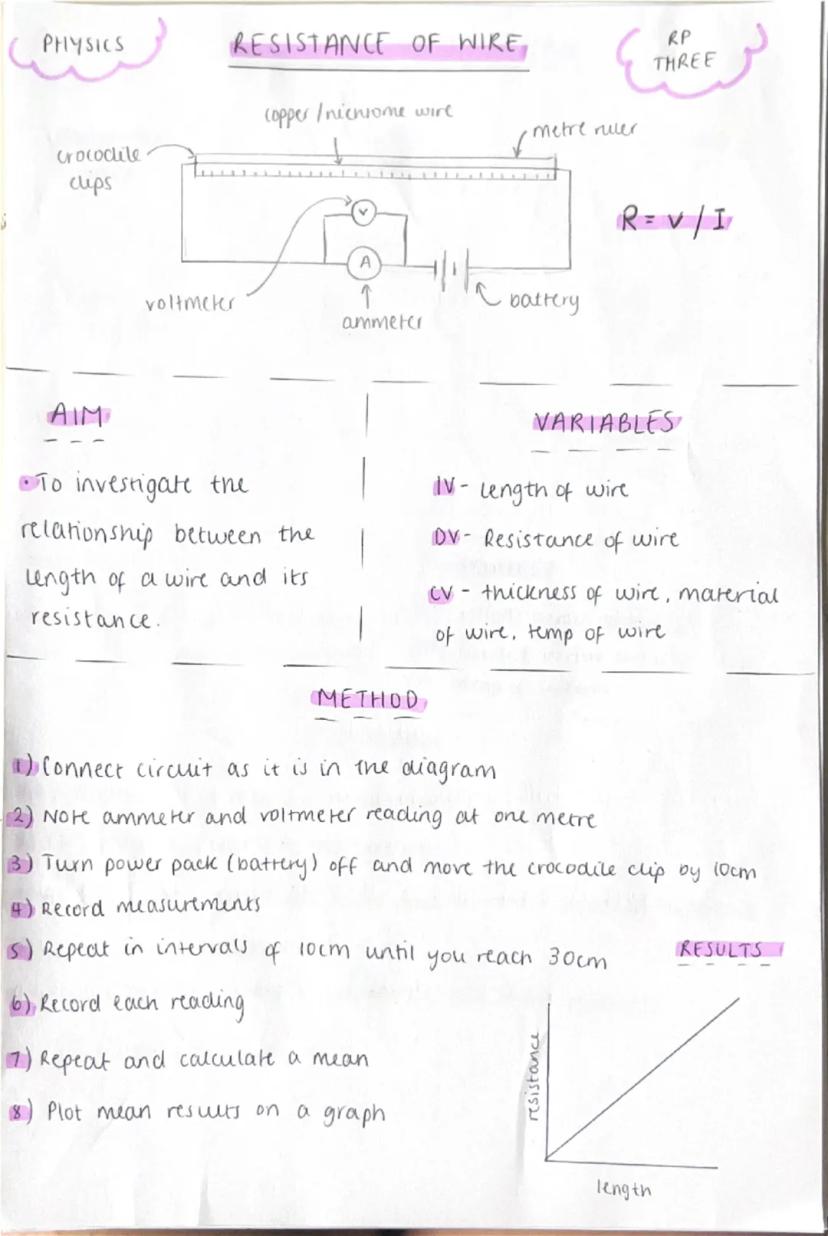 PHYSICS
RESISTANCE OF WIRE
RP
THREE
copper/nichrome wire
metre ruler
crocodile
clips
R = V / I
V
A
voltmeter
battery
ammeter
AIM
• To investigate the
relationship between the
length of a wire and its
resistance.
VARIABLES
IV - Length of wire
DV - Resistance of wire
CV - thickness of wire, material
of wire, temp of wire
METHOD
1) Connect circuit as it is in the diagram
2) Note ammeter and voltmeter reading at one metre
3) Turn power pack (battery) off and move the crocodile clip by 10cm
4) Record measurements
5) Repeat in intervals of 10cm until you reach 30cm
6) Record each reading
7) Repeat and calculate a mean
8) Plot mean results on a graph
RESULTS
resistance
length